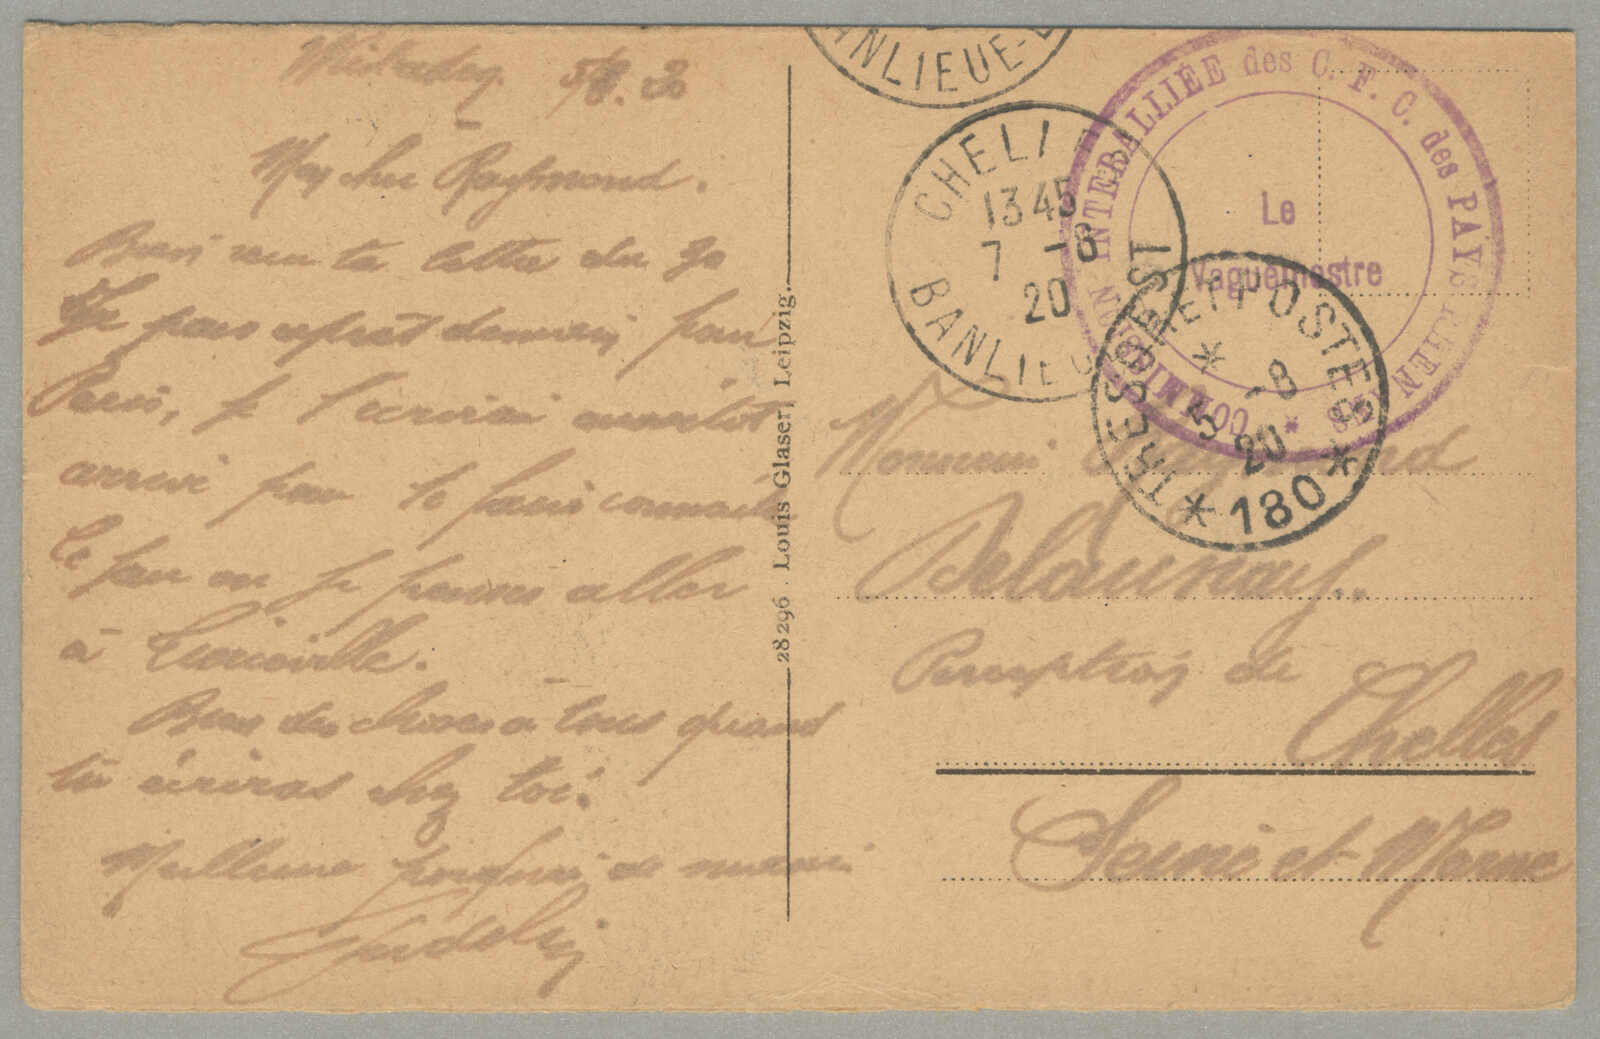 Wiesbaden 5/8. 20
Mon cher Raymond.
Bien reçu ta lettre du 30
Je pars demain pour
Paris, je t'écrirai aussitôt
arrivé pour te faire connaître
le jour où je pense aller
à
Bien des choses à tous quand
tu écriras chez toi.
Meilleure poignée de main
BANLIEUE-
CHELLES
13 45
7 -8
20
BANLIEUE EST
COMMISSION INTERALLIÉE des C. F. C. des PAYS RHENANS *
Le
Vaguemestre
TRESOR ET POSTES
* 5 -8 20
* 180 *
Monsieur Raymond
Delaunay.
Perception de
Chelles
Seine et Marne
28296 Louis Glaser, Leipzig.